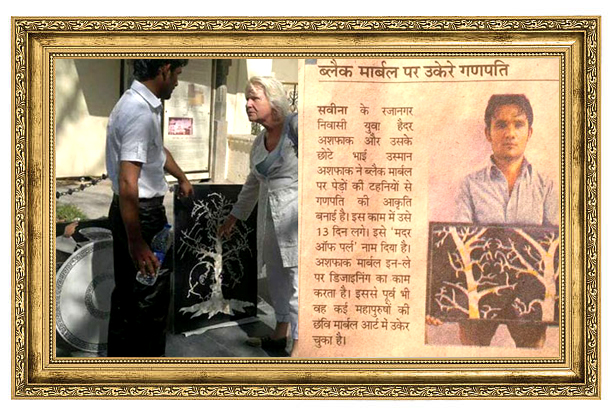 ब्लैक मार्बल पर उकेरे गणपति
सवीना के रजानगर
निवासी युवा हैदर
अशफाक और उसके
छोटे भाई उस्मान
अशफाक ने ब्लैक मार्बल
पर पेड़ों की टहनियों से
गणपति की आकृति
बनाई है। इस काम में उसे
13 दिन लगे। इसे 'मदर
ऑफ पर्ल' नाम दिया है।
अशफाक मार्बल इन-ले
पर डिजाइनिंग का काम
करता है। इससे पूर्व भी
वह कई महापुरुषों की
छवि मार्बल आर्ट में उकेर
चुका है।